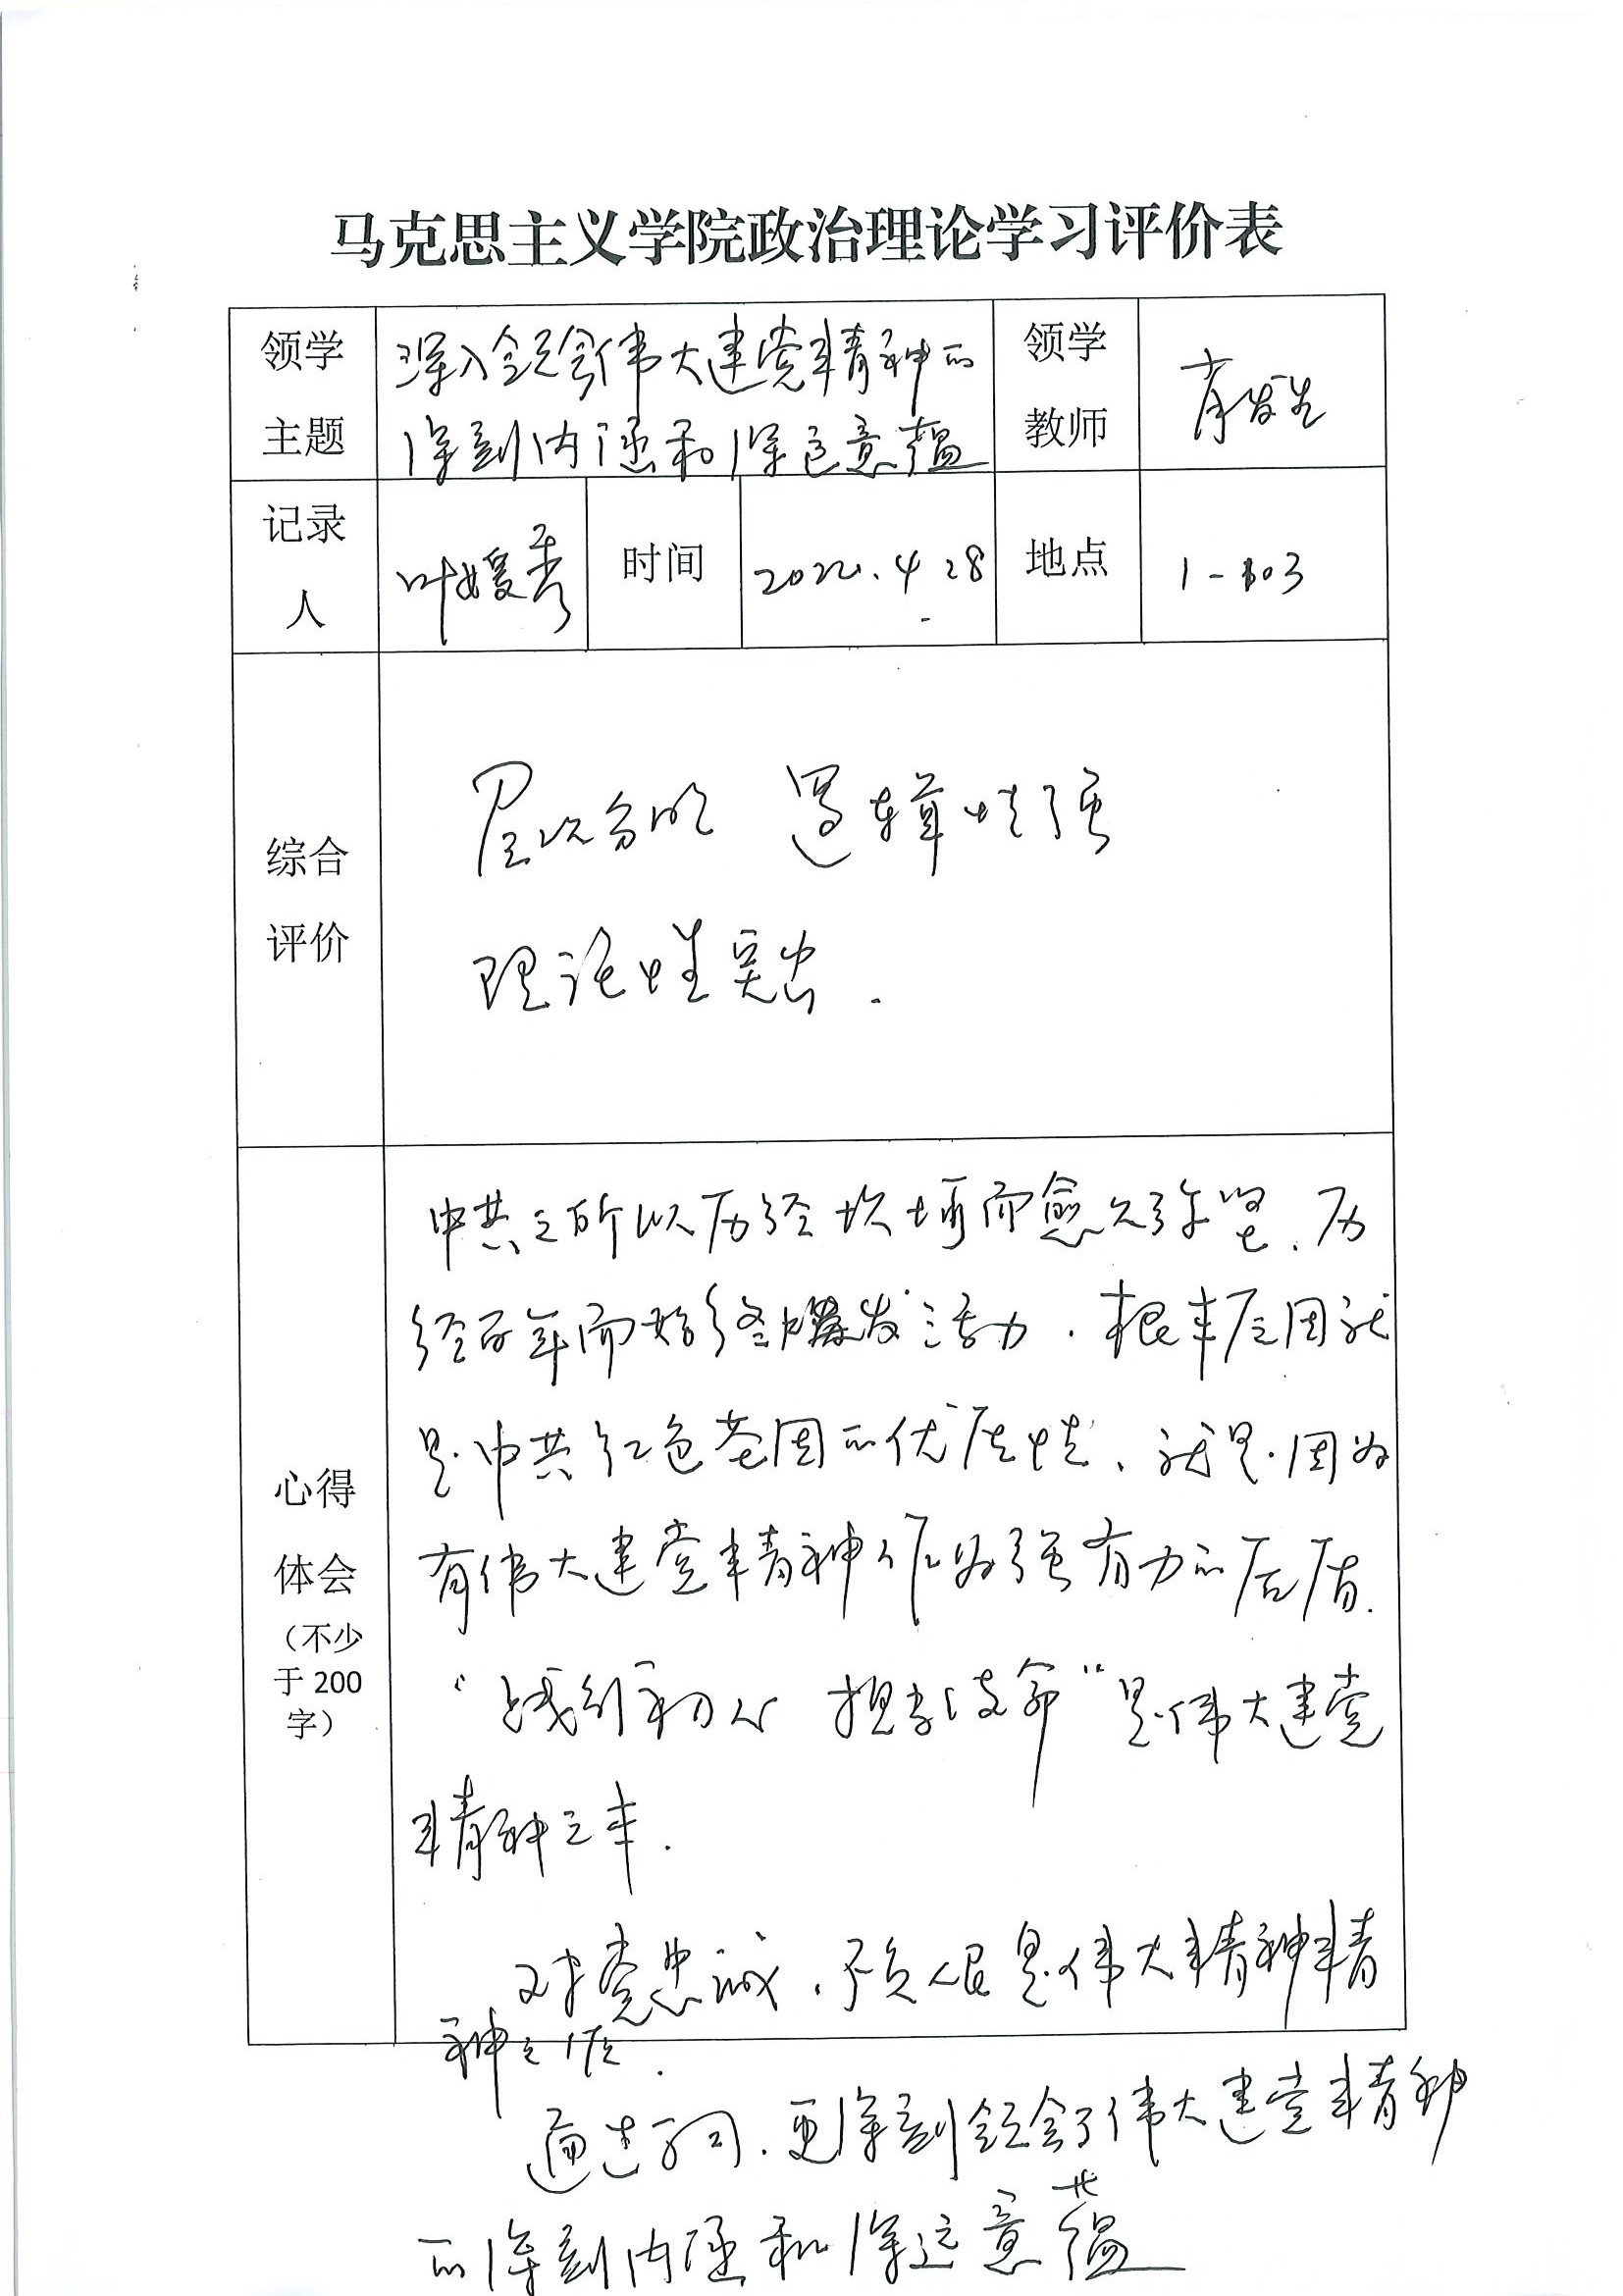 马克思主义学院政治理论学习评价表
领学
主题
深入领会伟大建党精神的
深刻内涵和深远意蕴
领学
教师
记录
人
叶媛秀
时间
2022.4.28
地点
1-303
综合
评价
层次分明 逻辑性强
理论性突出.
心得
体会
（不少
于 200
字）
中共之所以历经坎坷而愈久弥坚,历
经百年而始终爆发活力.根本原因就
是中共红色基因的优质性、就是因为
有伟大建党精神作为强有力的后盾.
“践行初心 担当使命”是伟大建党
精神之本.
对党忠诚,不负人民是伟大精神精
神之源.
通过学习.更深刻领会了伟大建党精神
的深刻内涵和深远意蕴